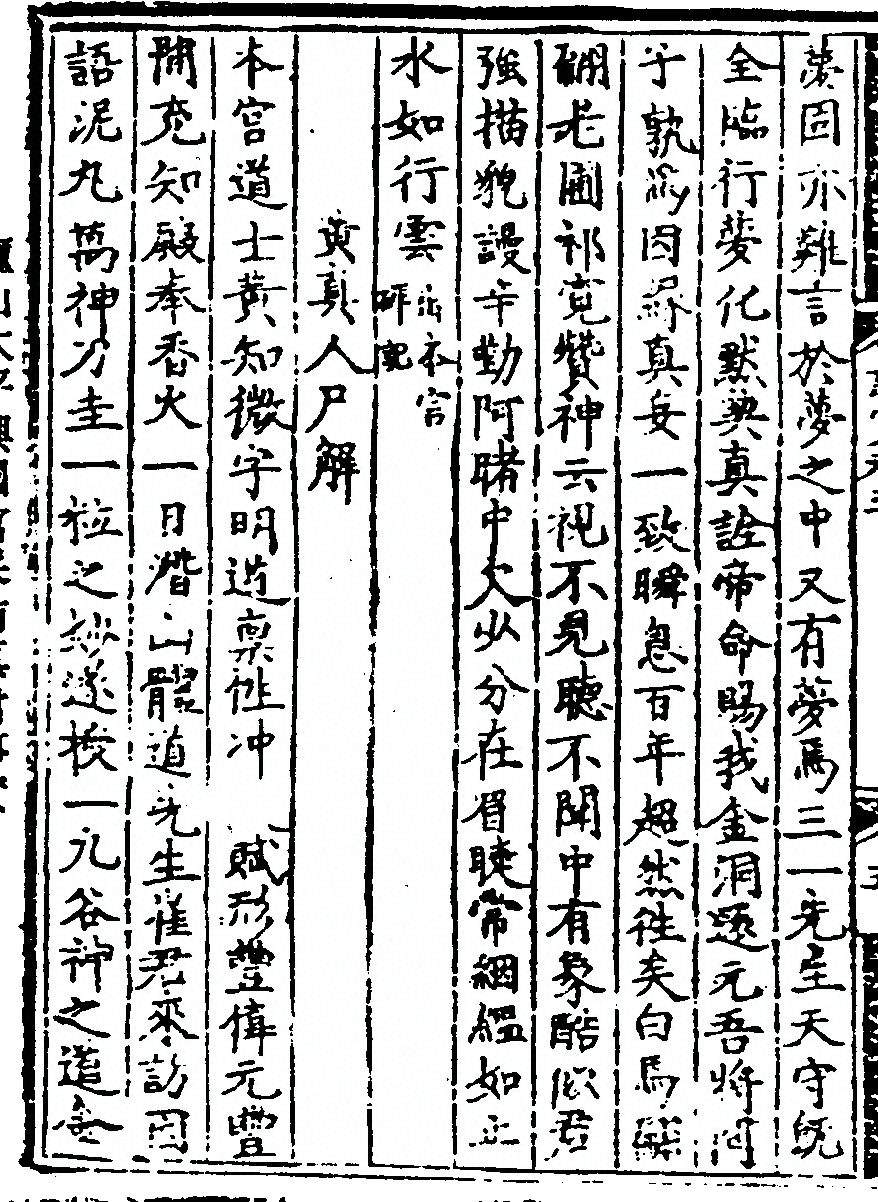 夢固亦難言於夢之中又有夢焉三一先生天守既
全臨行夢化默契真詮帝命賜我金洞還元吾將何
于孰為因緣真妄一致瞬息百年超然往矣白馬
翩老圃祁寬贊神云視不見聽不聞中有象酷似君
強描貌謾辛勤阿睹中欠必分在眉睫常絪縕如止
水如行雲
出本宮
碑記
黃真人尸解
本宮道士黃知微字明道稟性冲 賦形豐偉元豐
間充知殿奉香火一日灊山體道先生崔君來訪因
語泥丸萬神刀圭一粒之妙遂授一九谷神之道金